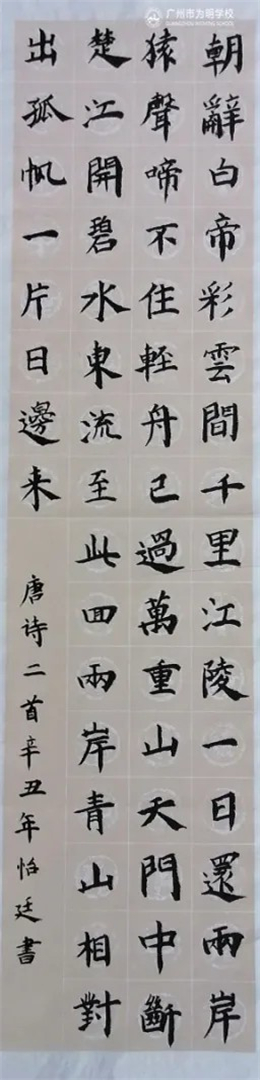 广州市为明学校
朝辭白帝彩雲間千里江陵一日還兩岸
猿聲啼不住輕舟已過萬重山天門中斷
楚江開碧水東流至此回兩岸青山相對
出孤帆一片日邊来
唐诗二首辛丑年怡廷書